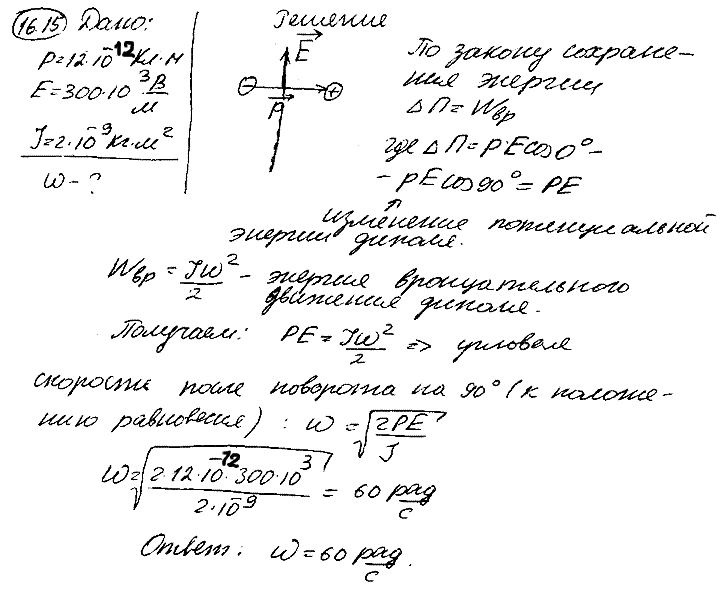 16.15 Дано:
Решение
P=12·10⁻¹² Кл·м
E=300·10³ В/м
J=2·10⁻⁹ кг·м²
ω-?
E
P
- +
По закону сохране-
ния энергии
ΔП=Wвр
где ΔП=p·Ecos0°-
-pEcos90°=PE
изменение потенциальной
энергии диполя.
Wвр = Jω²/2 - энергия вращательного
движения диполя.
Получаем: PE = Jω²/2 => угловая
скорость после поворота на 90° (к положе-
нию равновесия) : ω = √(2PE/J)
ω=√(2·12·10⁻¹²·300·10³/2·10⁻⁹) = 60 рад/с
Ответ: ω=60 рад/с.